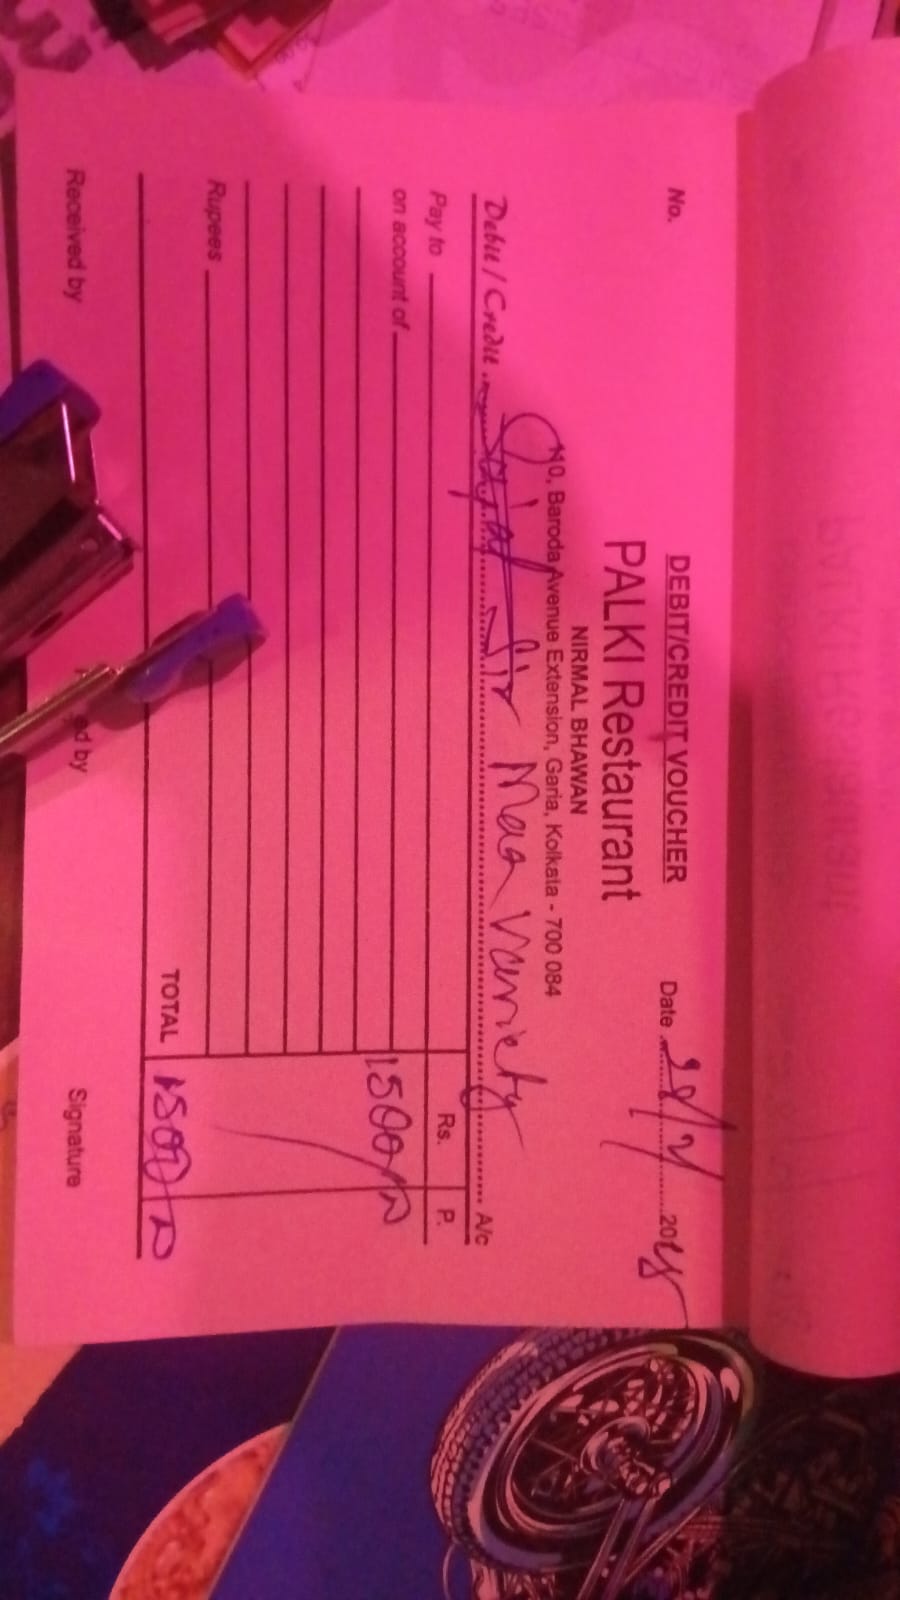 DEBIT/CREDIT VOUCHER
No.
Date 28/2 2018
PALKI Restaurant
NIRMAL BHAWAN
10, Baroda Avenue Extension, Garia, Kolkata - 700 084
Debit / Credit Sir Maa Variety A/c
Pay to Rs. P.
on account of
1500/
Rupees
TOTAL 1500/
Received by ed by Signature